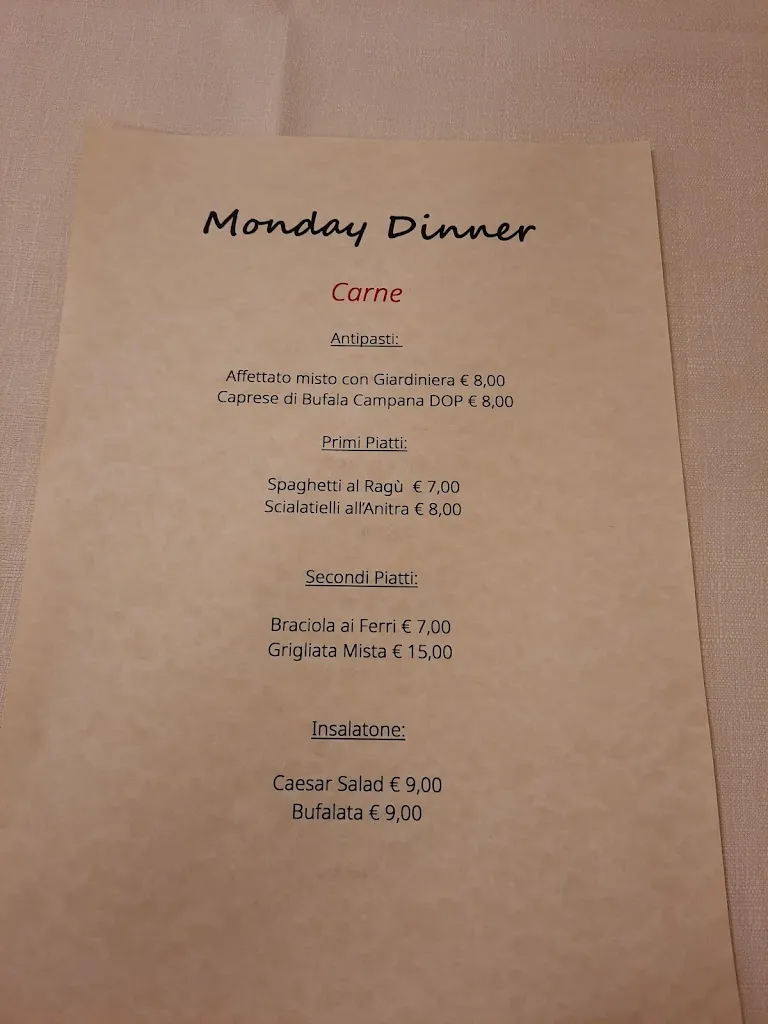 Monday Dinner
Carne
Antipasti:
Affettato misto con Giardiniera € 8,00
Caprese di Bufala Campana DOP € 8,00
Primi Piatti:
Spaghetti al Ragù € 7,00
Scialatielli all'Anitra € 8,00
Secondi Piatti:
Braciola ai Ferri € 7,00
Grigliata Mista € 15,00
Insalatone:
Caesar Salad € 9,00
Bufalata € 9,00